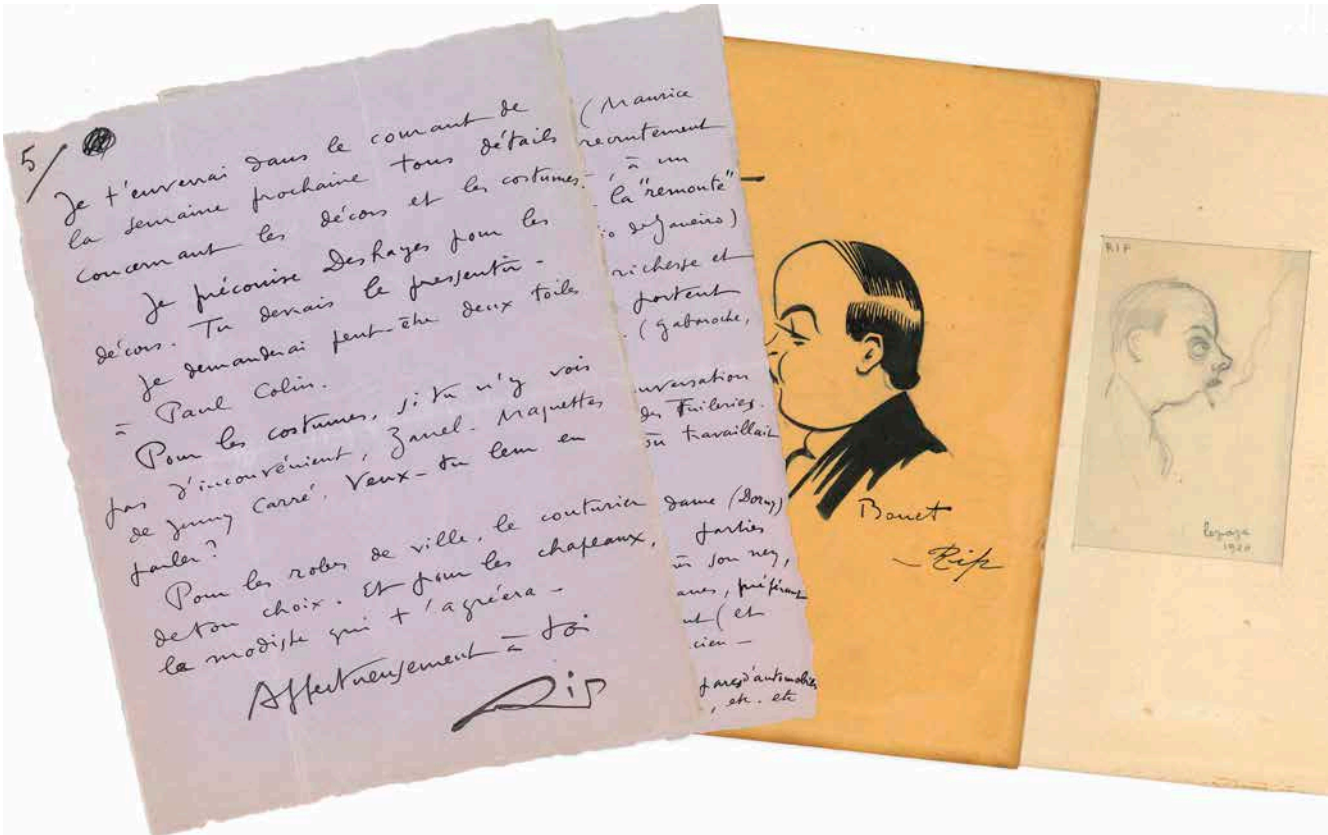 5/
Je t'enverrai dans le courant de
la semaine prochaine tous détails
concernant les décors et les costumes.
Je préconise Deshayes pour les
décors. Tu devrais le pressentir -
Je demanderai peut-être deux toiles
à Paul Colin.
Pour les costumes, si tu n'y vois
pas d'inconvénient, Zanel. Maquettes
de Jenny Carré. Veux-tu leur en
parler?
Pour les robes de ville, le couturier
de ton choix. Et pour les chapeaux,
la modiste qui t'agréera -
Affectueusement à toi
Rip
(Maurice
recrutement
à un
la "remonte"
de Janeiro)
richesse et
portent
(Gabaroche,
des Tuileries.
travaillait
dame (Dorny)
parties
son nez,
préférant
(et
d'automobiles
, etc. etc
Bonet
Rip
RIP
1920